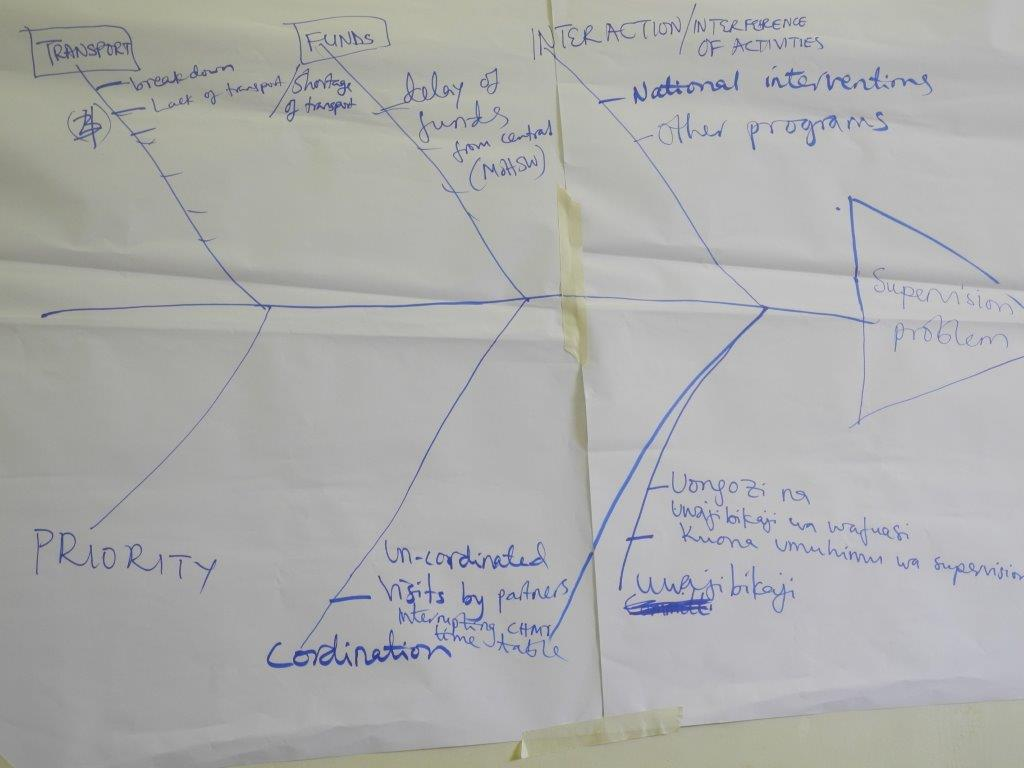 TRANSPORT
break down
Lack of transport
FUNDS
Shortage
of transport
delay of
funds
from central
(MoHSW)
INTERACTION/INTERFERENCE
OF ACTIVITIES
National interventions
other programs
Supervision
problem
PRIORITY
Un-cordinated
Visits by partners
Interrupting CHMT
time table
Cordination
Uongozi na
Uwajibikaji wa wafuasi
Kuona umuhimu wa supervision
Uwajibikaji